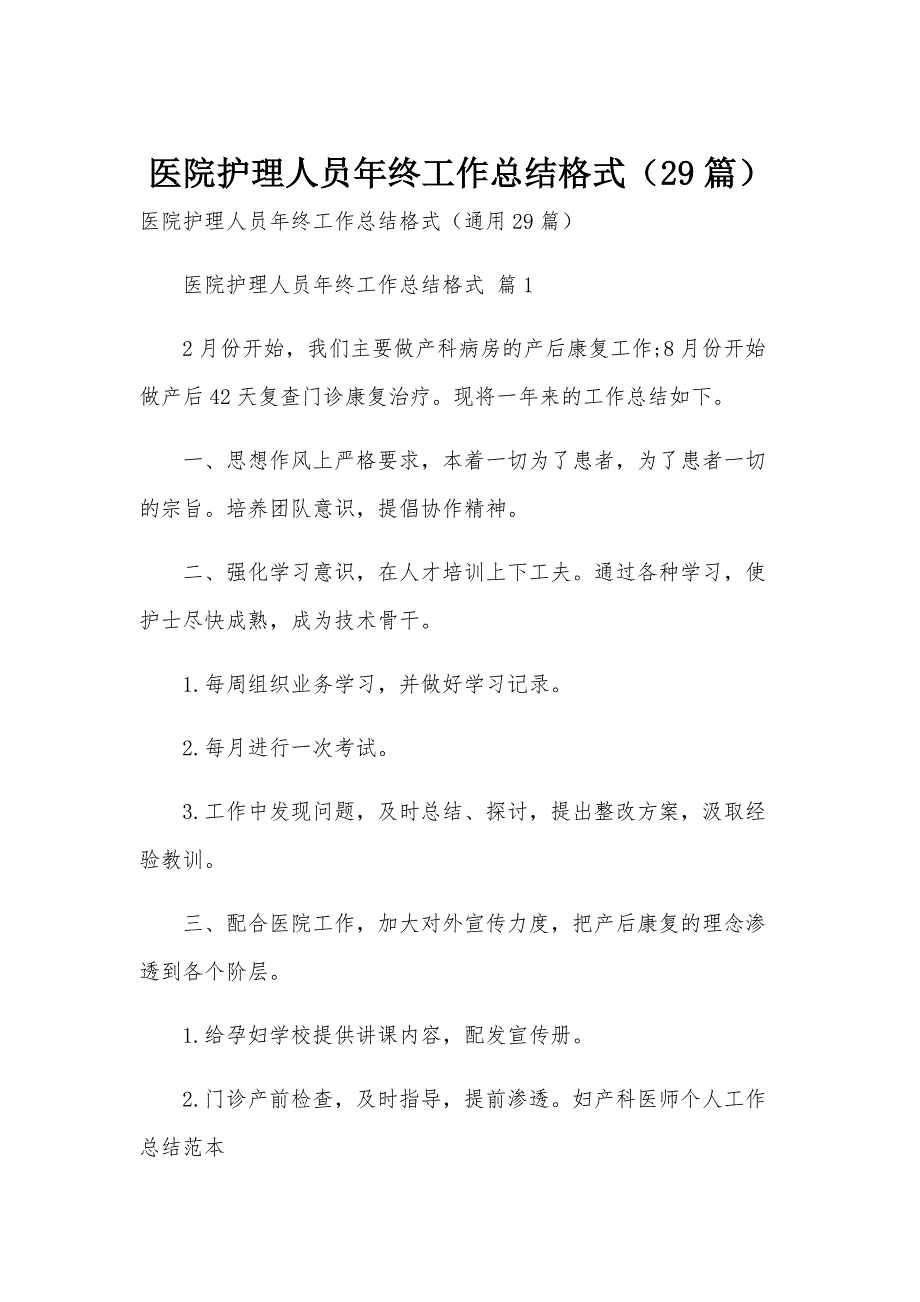 医院护理人员年终工作总结格式（29篇）
医院护理人员年终工作总结格式（通用29篇）
医院护理人员年终工作总结格式 篇1
2月份开始，我们主要做产科病房的产后康复工作;8月份开始
做产后42天复查门诊康复治疗。现将一年来的工作总结如下。
一、思想作风上严格要求，本着一切为了患者，为了患者一切
的宗旨。培养团队意识，提倡协作精神。
二、强化学习意识，在人才培训上下工夫。通过各种学习，使
护士尽快成熟，成为技术骨干。
1.每周组织业务学习，并做好学习记录。
2.每月进行一次考试。
3.工作中发现问题，及时总结、探讨，提出整改方案，汲取经
验教训。
三、配合医院工作，加大对外宣传力度，把产后康复的理念渗
透到各个阶层。
1.给孕妇学校提供讲课内容，配发宣传册。
2.门诊产前检查，及时指导，提前渗透。妇产科医师个人工作
总结范本